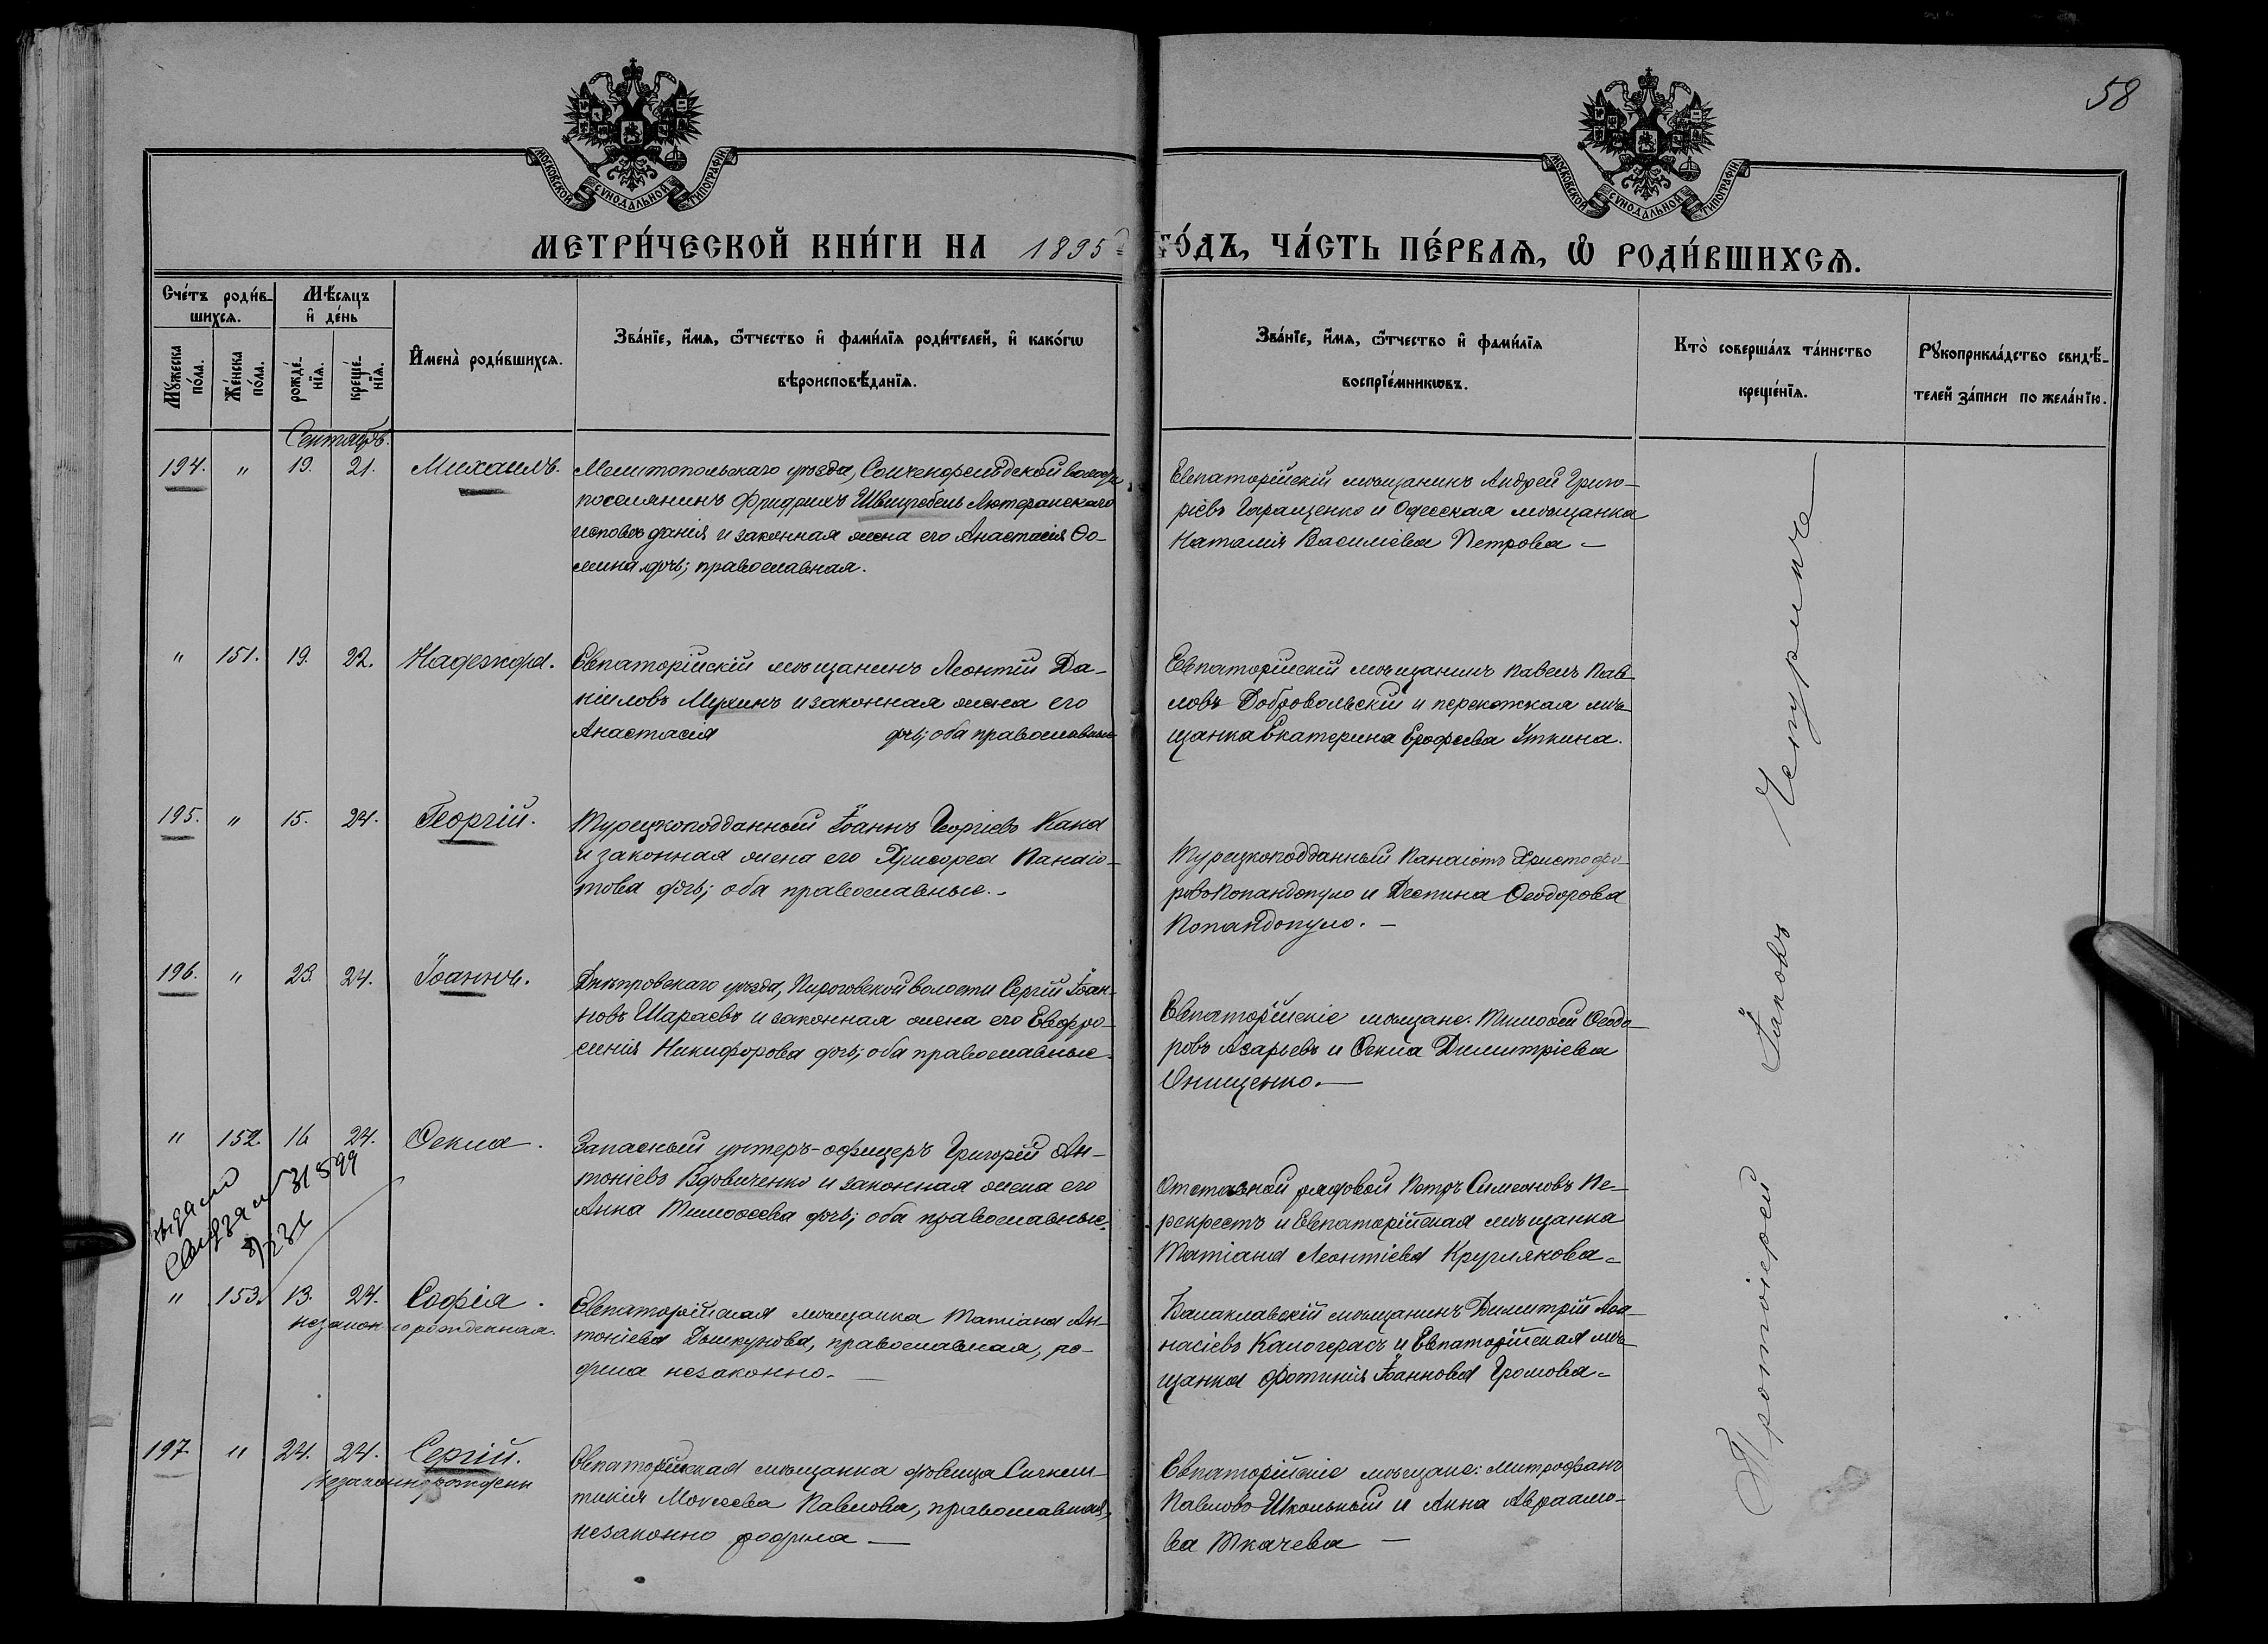 58
МОСКОВСКОЙ СѴНОДАЛЬНОЙ ТИПОГРАФІИ
МОСКОВСКОЙ СѴНОДАЛЬНОЙ ТИПОГРАФІИ
МЕТРИ́ЧЕСКОЙ КНИ́ГИ НА 1895 ГО́ДЪ, ЧА́СТЬ ПЕ́РВАѦ, Ѡ҆ РОДИ́ВШИХСѦ.
Сче́тъ роди́вшихсѧ.
Мꙋ́жеска по́ла.
Же́нска по́ла.
Мѣ́сѧцъ и҆ де́нь
рожде́нїѧ.
креще́нїѧ.
И҆мена̀ роди́вшихсѧ.
Зва́нїе, и҆́мѧ, ѻ҆́тчество и҆ фами́лїѧ роди́телей, и҆ како́гѡ
вѣроисповѣ́данїѧ.
Зва́нїе, и҆́мѧ, ѻ҆́тчество и҆ фами́лїѧ
воспрїе́мникѡвъ.
Кто̀ соверша́лъ та́инство
креще́нїѧ.
Рꙋкоприкла́дство свидѣ́-
телей за́писи по жела́нїю.
Сентябрь.
194. " 19. 21. Михаилъ.
Мелитопольскаго уѣзда, волости
поселянинъ Фридрихъ Швейгебель Лютеранскаго
исповѣданія и законная жена его Анастасія Ѳо-
мина дочь; православная.
Евпаторійскій мѣщанинъ Андрей Григо-
рієвъ Геращенко и Одесская мѣщанка
Наталія Василіева Петрова —
" 151. 19. 22. Надежда.
Евпаторійскій мѣщанинъ Леонтій Да-
ніиловъ Мухинъ и законная жена его
Анастасія дочь; оба православные
Евпаторійскій мѣщанинъ Павелъ Пав-
ловъ Добровольскій и перекопская мѣ-
щанка Екатерина Ерофеева Уткина.
195. " 15. 24. Георгій.
Турецкоподданный Іоаннъ Георгіевъ Кана
и законная жена его Хрисофеа Панаіо-
това дочь; оба православные. -
Турецкоподданный Панаіотъ Христофо-
ровъ Попандопуло и Деспина Ѳеодорова
Попандопуло. —
196. " 23. 24. Іоаннъ.
Днѣпровскаго уѣзда, волости Сергій Іоан-
новъ Шараевъ и законная жена его Евфро-
синія Никифорова дочь; оба православные.
Евпаторійскіе мѣщане: Тимоѳей Ѳеодо-
ровъ Азарьевъ и Ѳекла Димитріева
Онищенко. —
" 152. 16 24. Ѳекла.
Запасный унтеръ-офицеръ Григорій Ан-
тоніевъ Вдовиченко и законная жена его
Анна Тимоѳеева дочь; оба православные.
Отставной рядовой Петръ Симеоновъ Пе-
рекрестъ и Евпаторійская мѣщанка
Татіана Леонтіева Круглякова -
" 153. 13. 24. Софія.
незаконнорожденная.
Евпаторійская мѣщанка Татіана Ан-
тоніева Дышкунова, православная, ро-
дила незаконно. —
Балаклавскій мѣщанинъ Димитрій Аѳа-
насіевъ Калогерасъ и Евпаторійская мѣ-
щанка Фотинія Іоаннова Громова -
197. " 24. 24. Сергій.
незаконнорожденн
Евпаторійская мѣщанка дѣвица Синкли-
тикія Моисеева Павлова, православная,
незаконно родила —
Евпаторійскіе мѣщане: Митрофанъ
Павловъ Школьный и Анна Авраамо-
ва Ткачева —
Протоіерей Іаковъ Чепуринъ